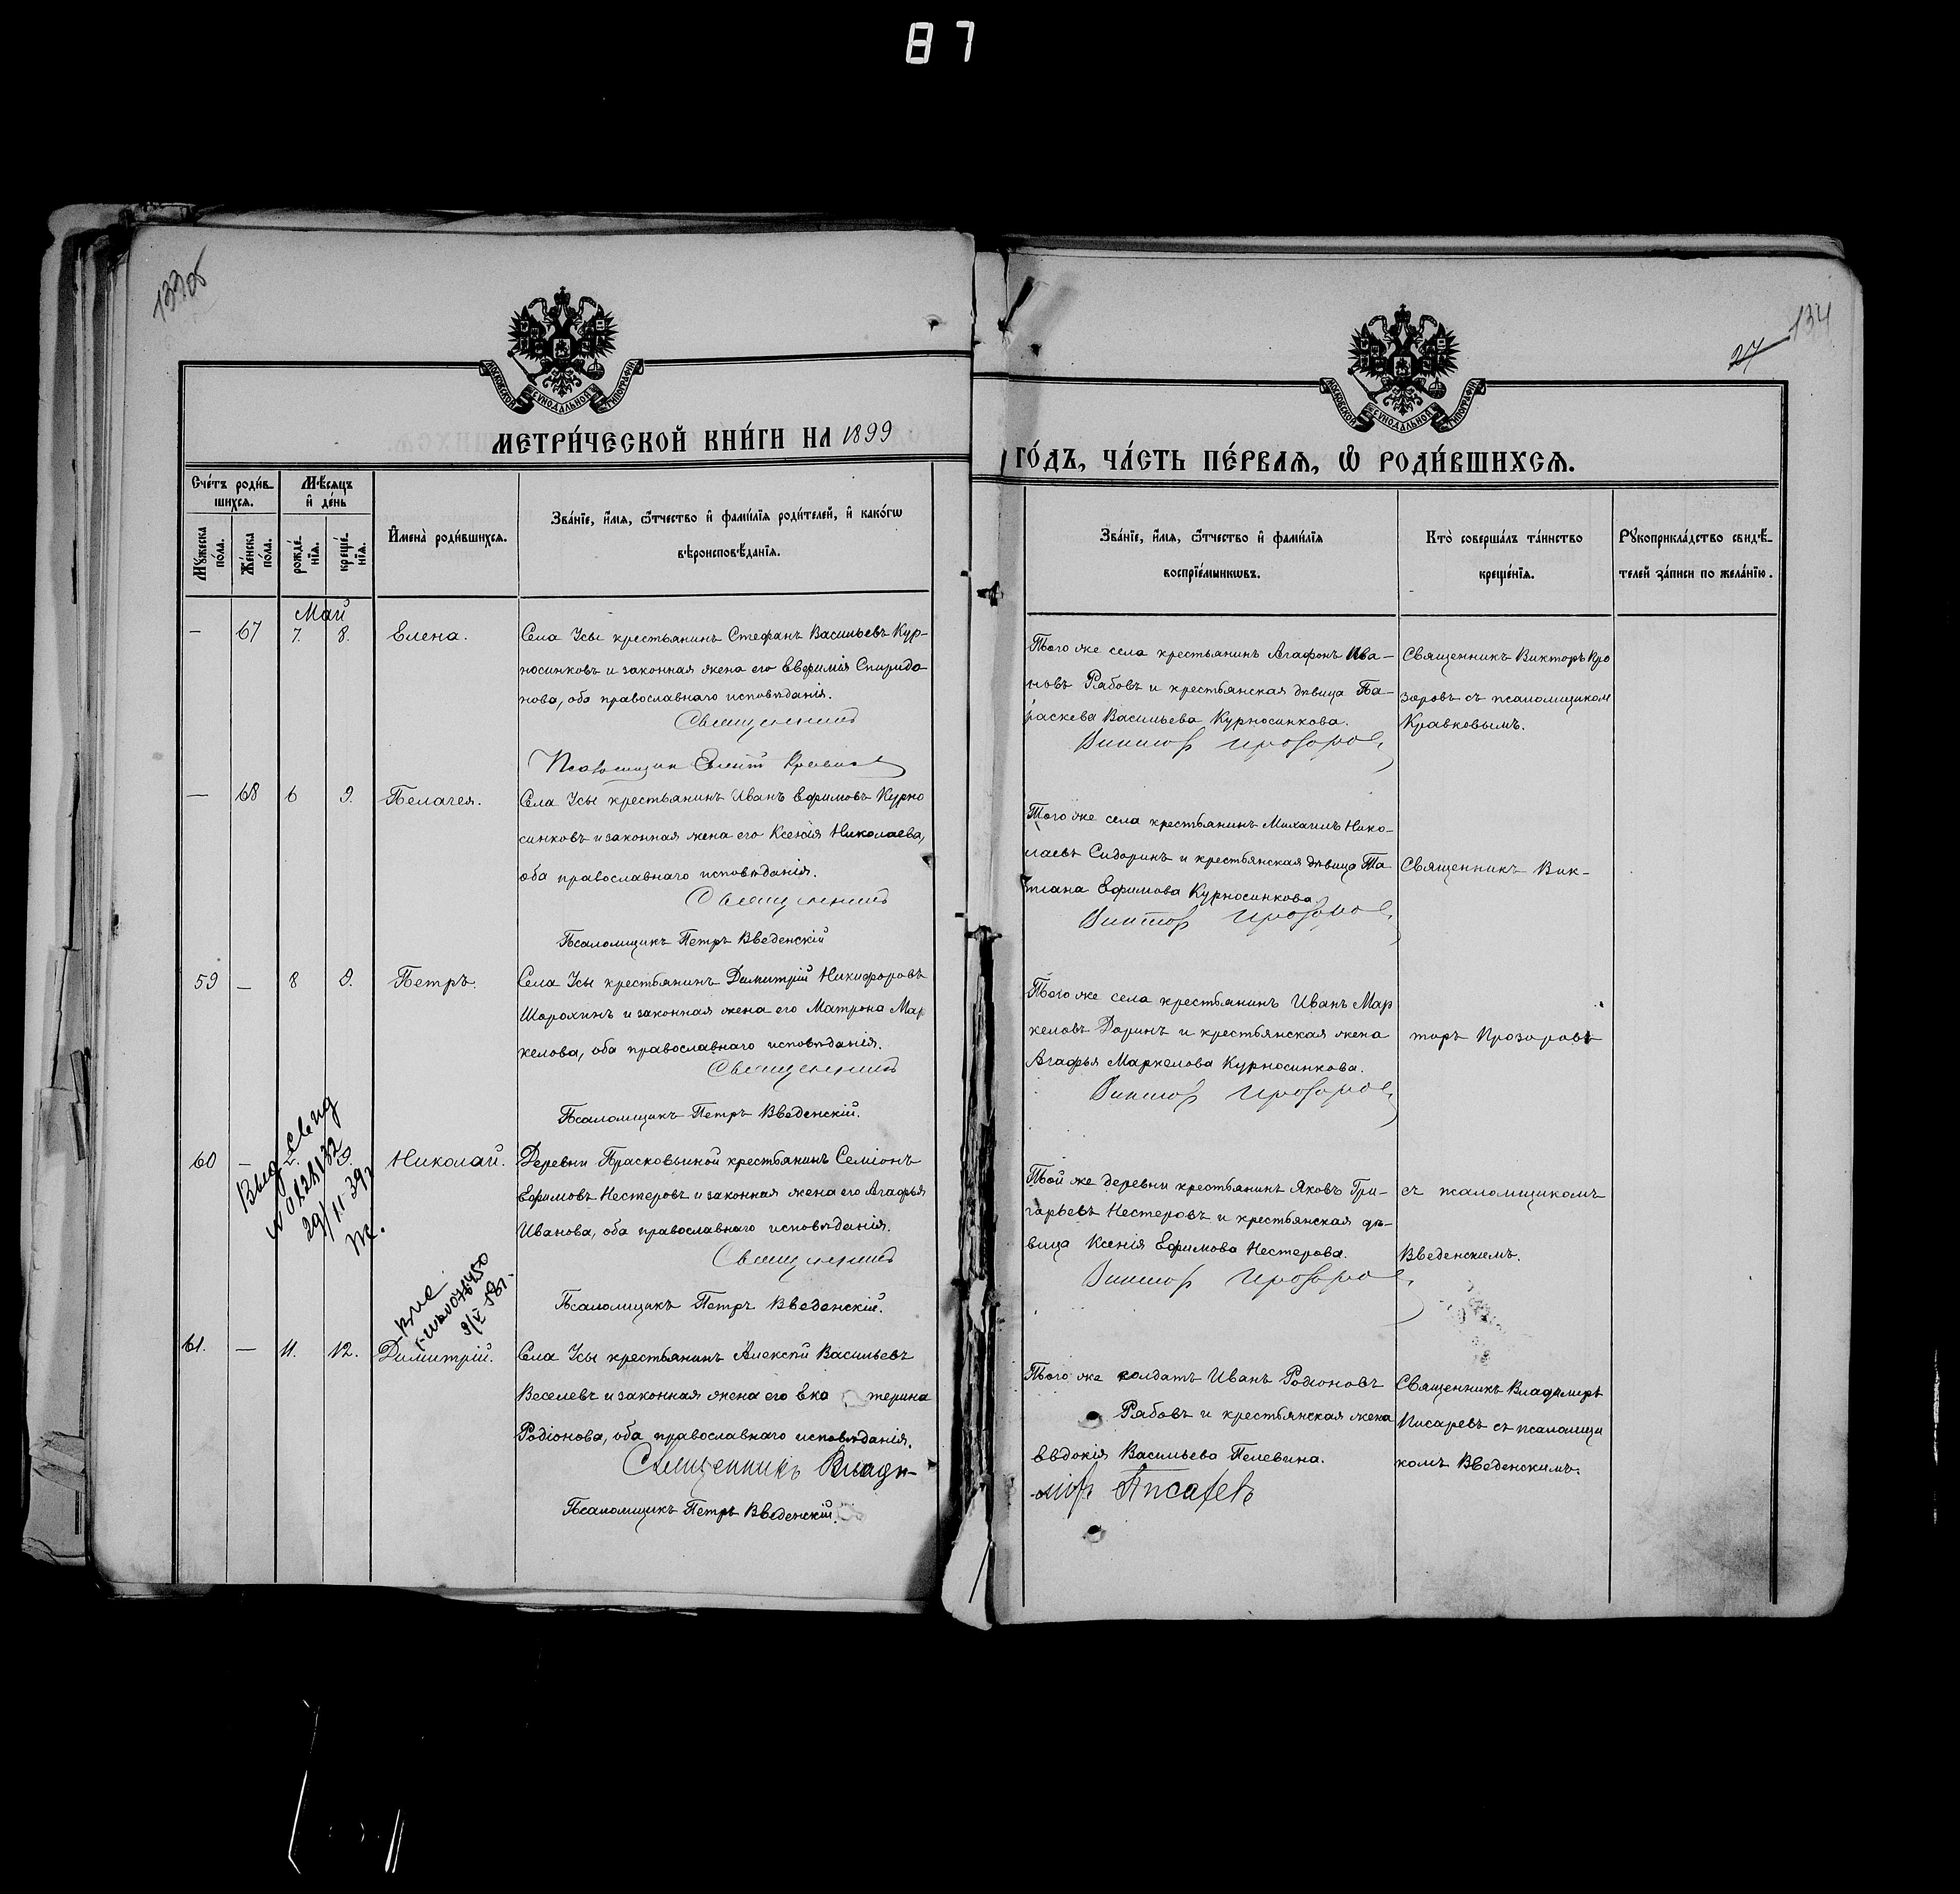 87
133об
134
27
МОСКОВСКОЙ СѴНОДАЛЬНОЙ ТИПОГРАФІИ
МОСКОВСКОЙ СѴНОДАЛЬНОЙ ТИПОГРАФІИ
МЕТРИ́ЧЕСКОЙ КНИ́ГИ НА 1899
ГО́ДЪ, ЧА́СТЬ ПЕ́РВАѦ, Ѡ РОДИ́ВШИХСѦ.
Сче́тъ роди́в-
шихсѧ.
Мꙋжеска
по́ла.
Же́нска
по́ла.
Мѣ́сѧцъ
и҆ де́нь
рожде́-
нїѧ.
креще́-
нїѧ.
И҆мена̀ роди́вшихсѧ.
Зва́нїе, и҆́мѧ, ѻ҆́тчество и҆ фами́лїѧ роди́телей, и҆ како́гѡ
вѣроисповѣ́данїѧ.
Зва́нїе, и҆́мѧ, ѻ҆́тчество и҆ фами́лїѧ
воспрїе́мникѡвъ.
Кто̀ соверша́лъ та́инство
креще́нїѧ.
Рꙋкоприкла́дство свидѣ́-
телей за́писи по жела́нїю.
Май
— 67 7. 8. Елена.
Села Усы крестьянинъ Стефанъ Васильевъ Кур-
носинковъ и законная жена его Евфимія Спиридо
нова, оба православнаго исповѣданія.
Священникъ
Псаломщик Кравков
Того же села крестьянинъ Агафонъ Ива-
новъ Рябовъ и крестьянская дѣвица Па-
раскева Васильева Курносинкова.
Виктор Прозоров
Священникъ Викторъ Про
зоровъ съ псаломщиком
Кравковымъ.
— 68 6 9. Пелагея.
Села Усы крестьянинъ Иванъ Ефимовъ Курно
синковъ и законная жена его Ксенія Николаева,
оба православнаго исповѣданія.
Священникъ
Псаломщикъ Петръ Введенскій
Того же села крестьянинъ Михаилъ Нико-
лаевъ Сидоринъ и крестьянская дѣвица Та
тіана Ефимова Курносинкова.
Виктор Прозоров
Священникъ Вик-
59 — 8 9. Петръ.
Села Усы крестьянинъ Димитрій Никифоровъ
Шорохинъ и законная жена его Матрона Мар
келова, оба православнаго исповѣданія.
Священникъ
Псаломщикъ Петръ Введенскій.
Того же села крестьянинъ Иванъ Мар
келовъ Доринъ и крестьянская жена
Агафья Маркелова Курносинкова.
Виктор Прозоров
торъ Прозоровъ
60 — 9 Николай.
Выд. Свид
29/11 39г
Деревни Прасковьиной крестьянинъ Семіонъ
Ефимовъ Нестеровъ и законная жена его Агафья
Иванова, оба православнаго исповѣданія.
Священникъ
Псаломщикъ Петръ Введенскій.
Той же деревни крестьянинъ Яковъ Гри-
гарьевъ Нестеровъ и крестьянская дѣ-
вица Ксенія Ефимова Нестерова.
Виктор Прозоров
съ псаломщикомъ
Введенскимъ.
61. — 11. 12. Димитрій.
Села Усы крестьянинъ Алексѣй Васильевъ
Веселевъ и законная жена его Ека терина
Родіонова, оба православнаго исповѣданія.
Священникъ Влади-
Псаломщикъ Петръ Введенскій.
Того же солдатъ Иванъ Родіоновъ
Рябовъ и крестьянская жена
Евдокія Васильева Пелевина.
міръ Писаревъ
Священникъ Владиміръ
Писаревъ съ псаломщи
комъ Введенскимъ.